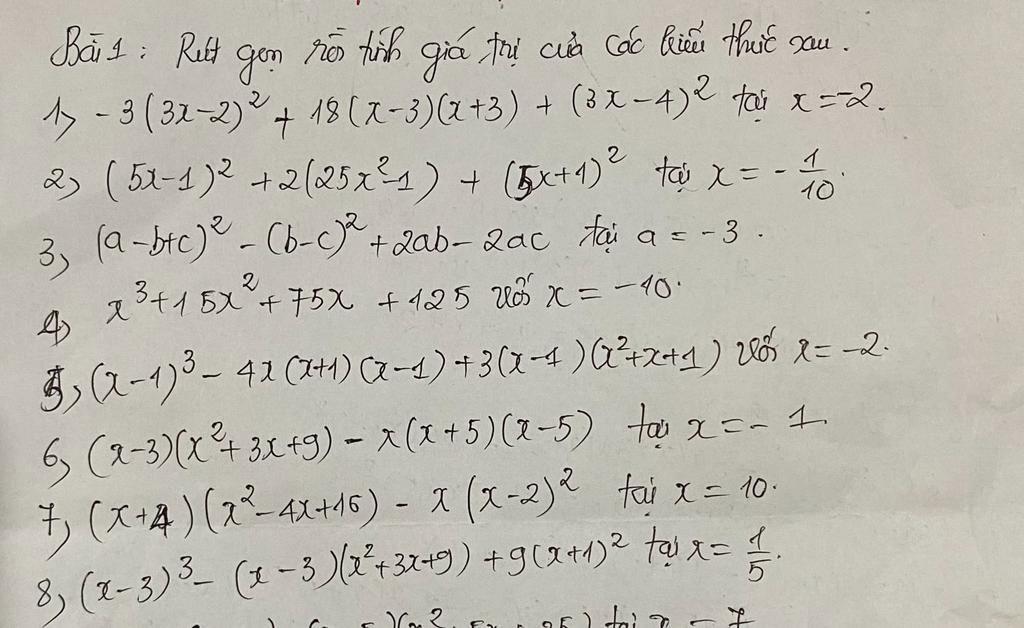 Bài 1: Rút gọn rồi tính giá trị của các biểu thức sau.
1, -3(3x-2)² + 18(x-3)(x+3) + (3x-4)² tại x=-2.
2, (5x-1)² + 2(25x²-1) + (5x+1)² tại x = -1/10.
3, (a-b+c)² - (b-c)² + 2ab - 2ac tại a = -3.
4, x³+15x²+75x +125 với x = -10.
5, (x-1)³ - 4x(x+1)(x-1)+3(x-1)(x²+x+1) với x = -2.
6, (x-3)(x²+3x+9) - x(x+5)(x-5) tại x = -1.
7, (x+4)(x²-4x+16) - x(x-2)² tại x = 10.
8, (x-3)³ - (x-3)(x²+3x+9) + 9(x+1)² tại x = 1/5.